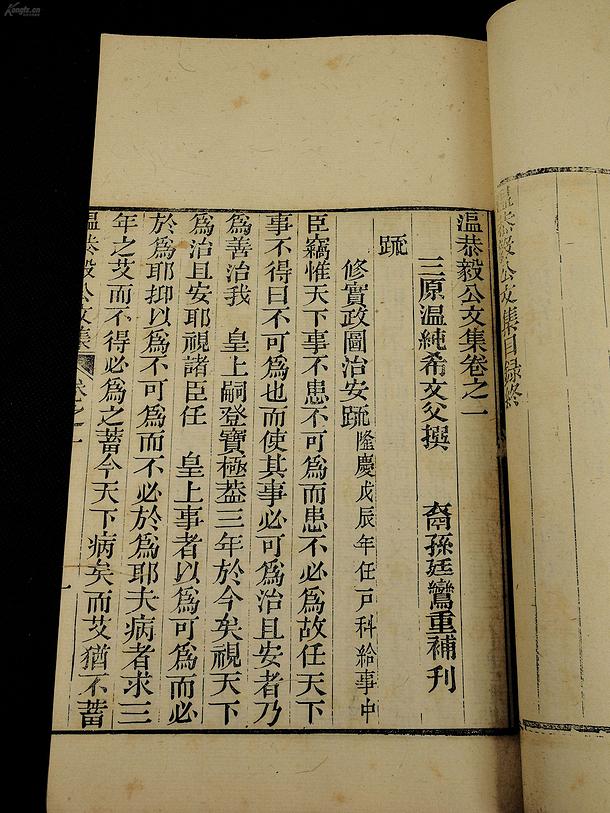 溫恭毅公文集目録終
溫恭毅公文集卷之一
三原溫純希文父撰 裔孫廷鸞重補刊
疏
修實政圖治安疏隆慶戊辰年任戸科給事中
臣竊惟天下事不患不可爲而患不必爲故任天下
事不得曰不可爲也而使其事必可爲治且安者乃
爲善治我 皇上嗣登寶極葢三年於今矣視天下
爲治且安耶視諸臣任 皇上事者以爲可爲而必
於爲耶抑以爲不可爲而不必於爲耶夫病者求三
年之艾而不得必爲之蓄今天下病矣而艾猶不蓄
溫恭毅公文集 卷之一 一
Kongfz.cn